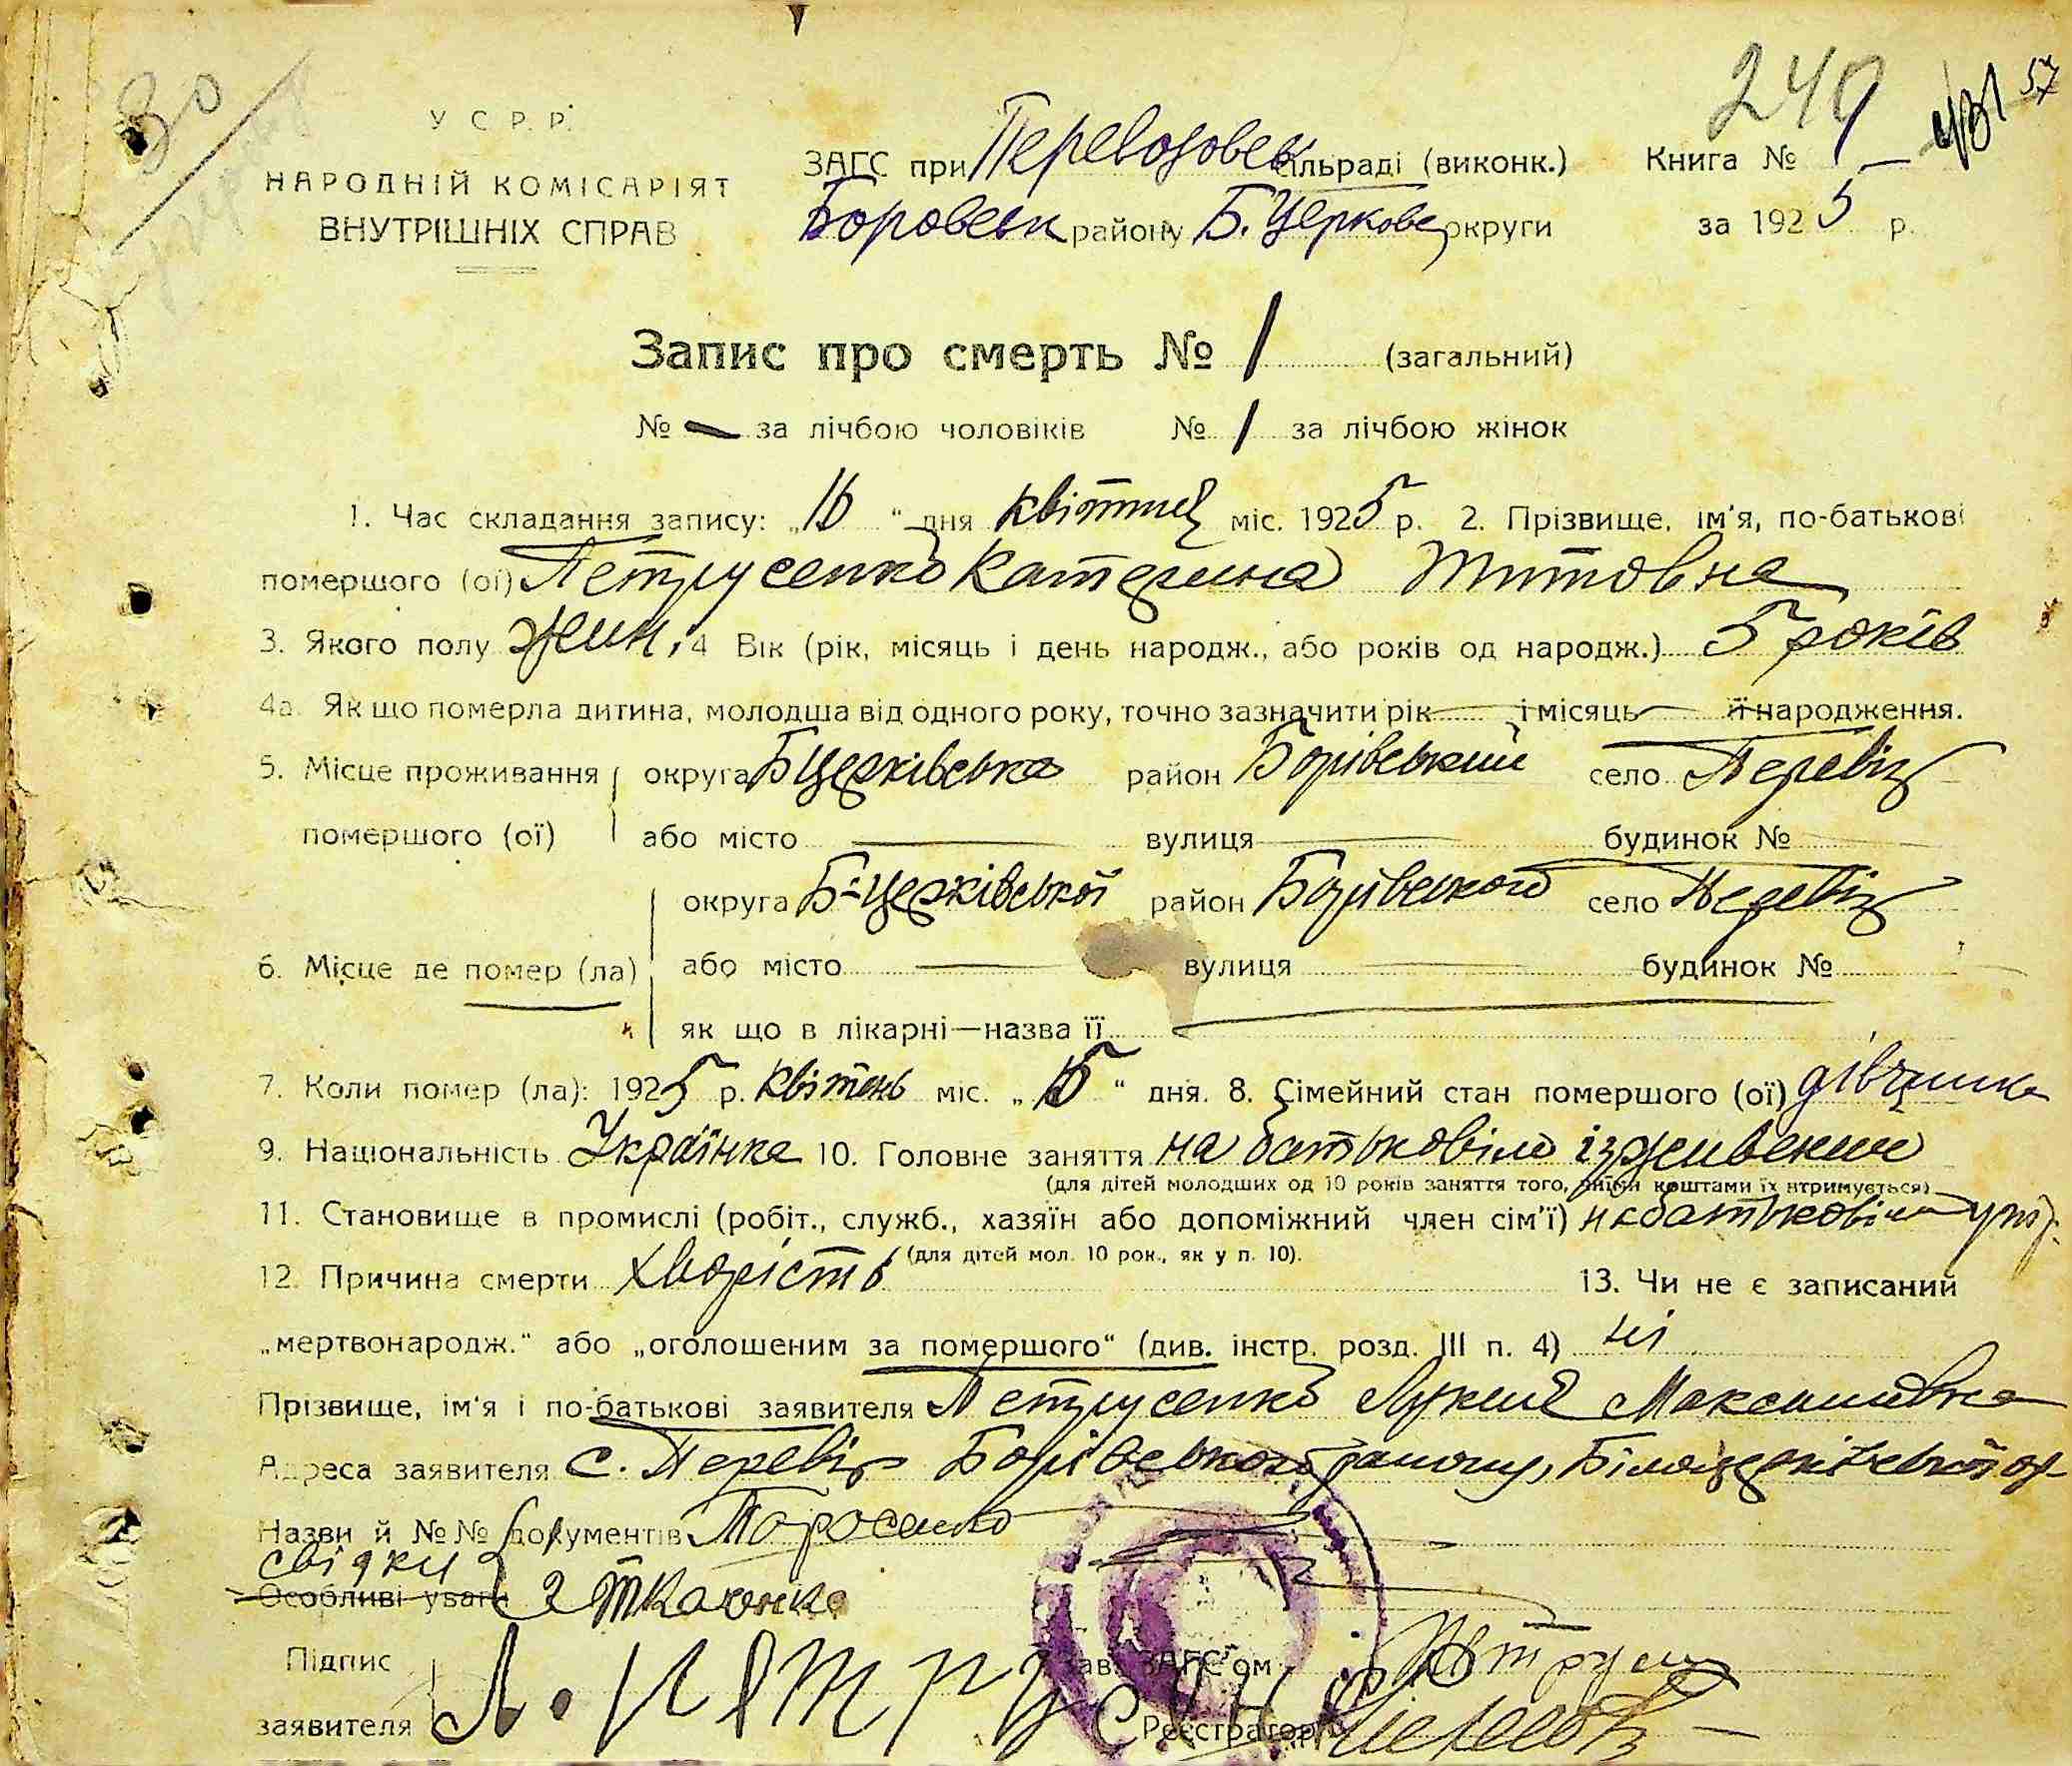 30
249
57
У С Р. Р.
НАРОДНІЙ КОМІСАРІЯТ
ВНУТРІШНІХ СПРАВ
ЗАГС при Перевозовск сільраді (виконк.)
Боровськ району Б. Церковс округи
Книга № 1
за 1925 р.
Запис про смерть № 1 (загальний)
№ — за лічбою чоловіків № 1 за лічбою жінок
1. Час складання запису: „16“ дня квітня міс. 1925 р. 2. Прізвище, ім'я, по-батькові
помершого (ої) Петрусенко Катерина Титовна
3. Якого полу жин. 4 Вік (рік, місяць і день народж., або років од народж.) 5 років
4а. Як що померла дитина, молодша від одного року, точно зазначити рік — і місяць — її народження.
5. Місце проживання округа БЦерківська район Борівський село Перевіз
помершого (ої) або місто — вулиця — будинок №
округа Б-Церківської район Борівського село Перевіз
6. Місце де помер (ла) або місто — вулиця — будинок №
як що в лікарні—назва її —
7. Коли помер (ла): 1925 р. квітень міс. „15“ дня. 8. Сімейний стан помершого (ої) дівчинка
9. Національність Українка 10. Головне заняття на батьковім іздивении
(для дітей молодших од 10 років заняття того, чиїми коштами їх втримується)
11. Становище в промислі (робіт., служб., хазяїн або допоміжний член сім'ї) на батьковім
(для дітей мол. 10 рок., як у п. 10).
12. Причина смерти хворість 13. Чи не є записаний
„мертвонародж.“ або „оголошеним за помершого“ (див. інстр. розд. III п. 4) ні
Прізвище, ім'я і по-батькові заявителя Петрусенко Лукия Максимовна
Адреса заявителя с. Перевіз Борівського району, Білоцерківської ок
Назви й №№ документів
свідки
Особливі уваги
Підпис
заявителя Л. Петрусенко
Зав. ЗАГС'ом
Реєстратор